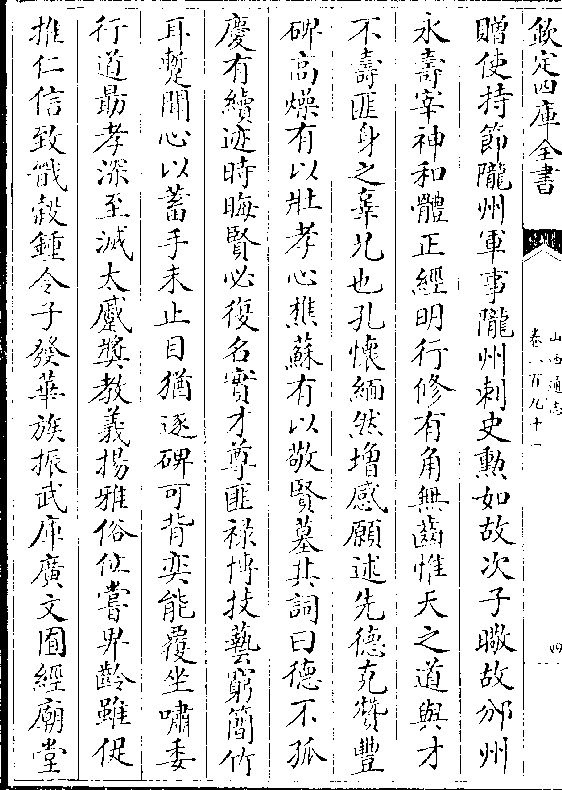 欽定四庫全書
山西通志
卷一百九十一
四
贈使持節隴州軍事隴州刺史勲如故次子曒故邠州
永壽宰神和體正經明行修有角無齒惟天之道與才
不壽匪身之辜凡也孔懷緬然增感願述先德克贊豐
碑高燥有以壯孝心樵蘇有以敬賢墓其詞曰德不孤
慶有續迹時晦賢必復名實才尊匪禄博技藝窮簡竹
耳蹔聞心以蓄手未止目猶逐碑可背奕能覆坐嘯委
行道勗孝深至滅太感奬教義揚雅俗位嘗畀齡雖促
推仁信致戩榖鍾令子發華族振武庫廣文囿經廟堂